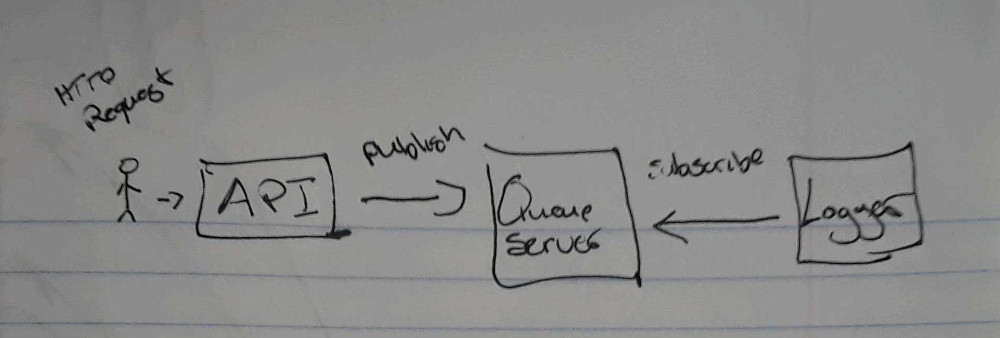 HTTP
Request
API
publish
Queue
Server
subscribe
Logger